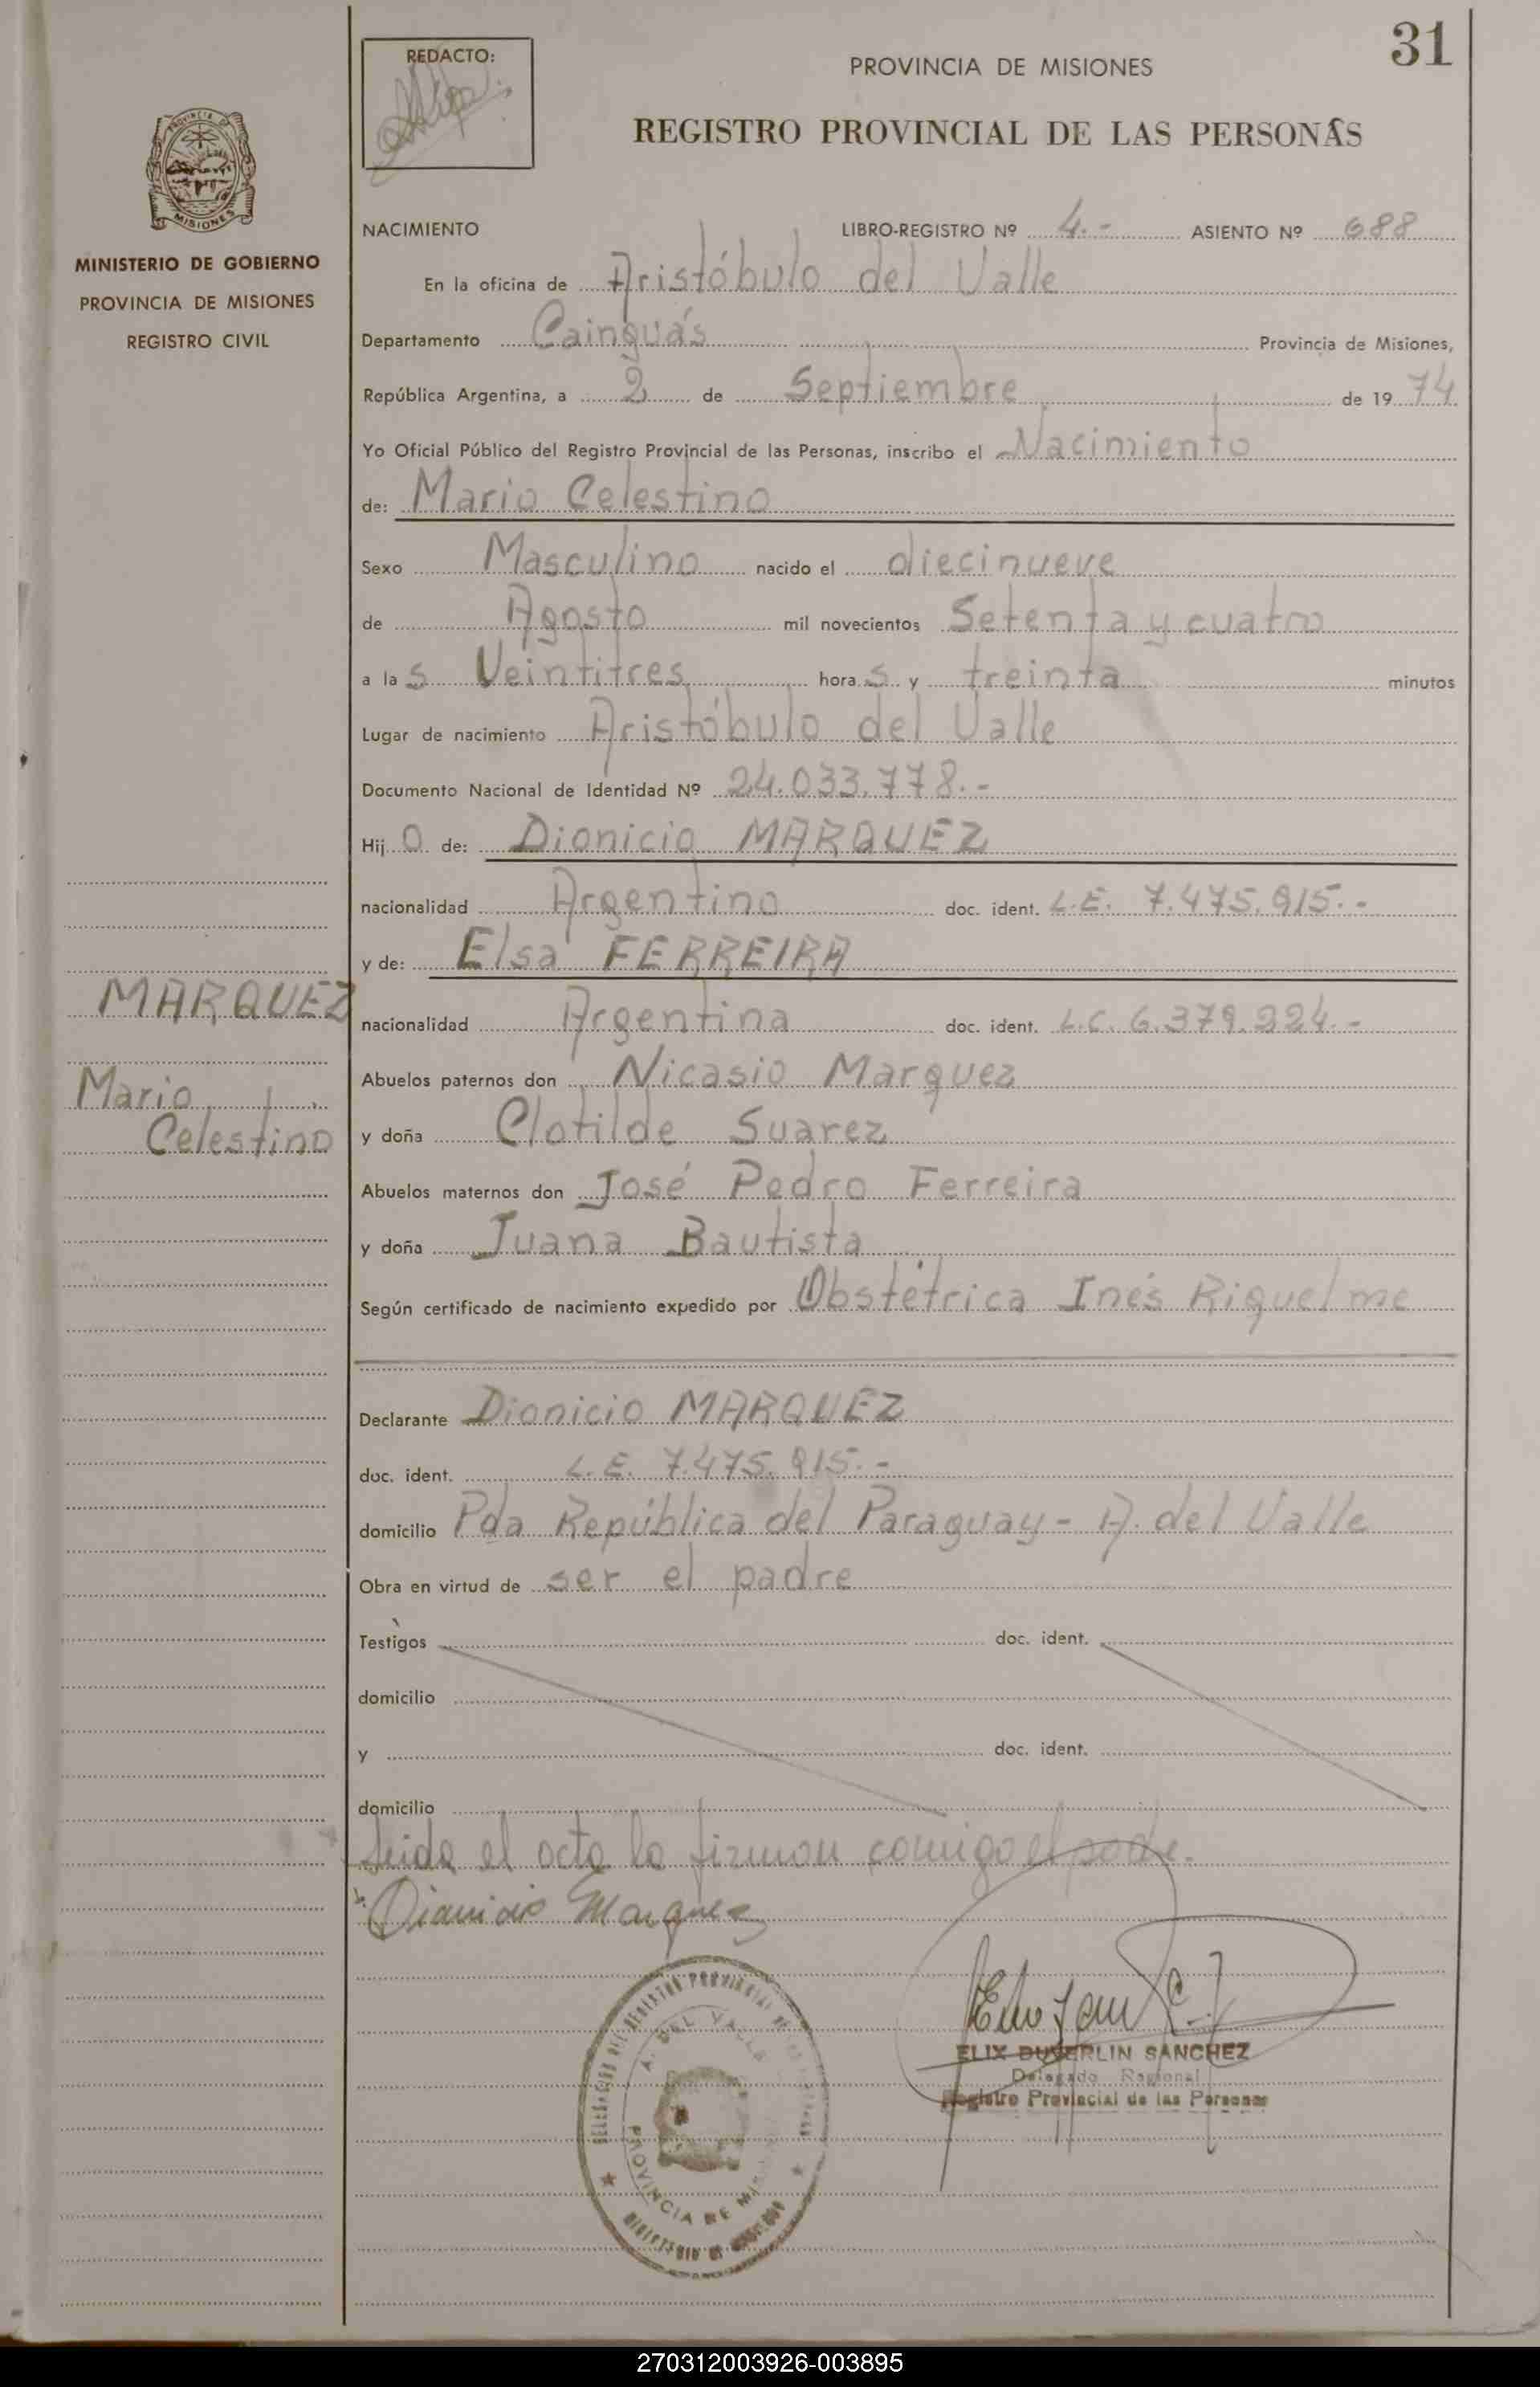 31
REDACTO:
PROVINCIA DE MISIONES
REGISTRO PROVINCIAL DE LAS PERSONAS
PROVINCIA DE
MISIONES
MINISTERIO DE GOBIERNO
PROVINCIA DE MISIONES
REGISTRO CIVIL
NACIMIENTO LIBRO-REGISTRO Nº 4.- ASIENTO Nº 688
En la oficina de Aristóbulo del Valle
Departamento Cainguás Provincia de Misiones,
República Argentina, a 2 de Septiembre de 1974
Yo Oficial Público del Registro Provincial de las Personas, inscribo el Nacimiento
de: Mario Celestino
Sexo Masculino nacido el diecinueve
de Agosto mil novecientos Setenta y cuatro
a las Veintitres horas y treinta minutos
Lugar de nacimiento Aristóbulo del Valle
Documento Nacional de Identidad Nº 24.033.778.-
Hijo de: Dionicio MARQUEZ
nacionalidad Argentino doc. ident. L.E. 7.475.915.-
y de: Elsa FERREIRA
nacionalidad Argentina doc. ident. L.C. 6.379.224.-
MARQUEZ
Mario
Celestino
Abuelos paternos don Nicasio Marquez
y doña Clotilde Suarez
Abuelos maternos don José Pedro Ferreira
y doña Juana Bautista
Según certificado de nacimiento expedido por Obstétrica Inés Riquelme
Declarante Dionicio MARQUEZ
doc. ident. L.E. 7.475.915.-
domicilio Pda República del Paraguay - A. del Valle
Obra en virtud de ser el padre
Testigos doc. ident.
domicilio
y doc. ident.
domicilio
Leida el acta la firman comigo el padre.
Dionicio Marquez
ELIX DUVERLIN SANCHEZ
Delegado Regional
Registro Provincial de las Personas
A. DEL VALLE
PROVINCIA DE
270312003926-003895